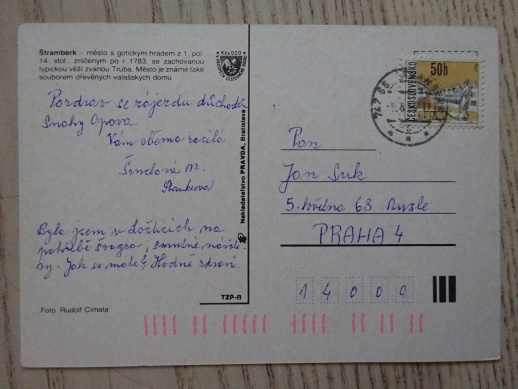 Štramberk – město s gotickým hradem z 1. pol.
14. stol., zničeným po r. 1783, se zachovanou
typickou věží zvanou Trúba. Město je známé také
souborem dřevěných valašských domů
Pozdrav se zájezdu důchodců
Snahy Opava
Vám oběma zasílá
M.
Byla jsem v
na
pohřbě švagra, smutné
Jak se máte? Hodně zdraví
Foto Rudolf Cimala
TZP-G
Nakladatelství PRAVDA, Bratislava
Kčs 0,20
50h
ČESKOSLOVENSKO
Pan
Jan Suk
5. května 68 Nusle
PRAHA 4
14000